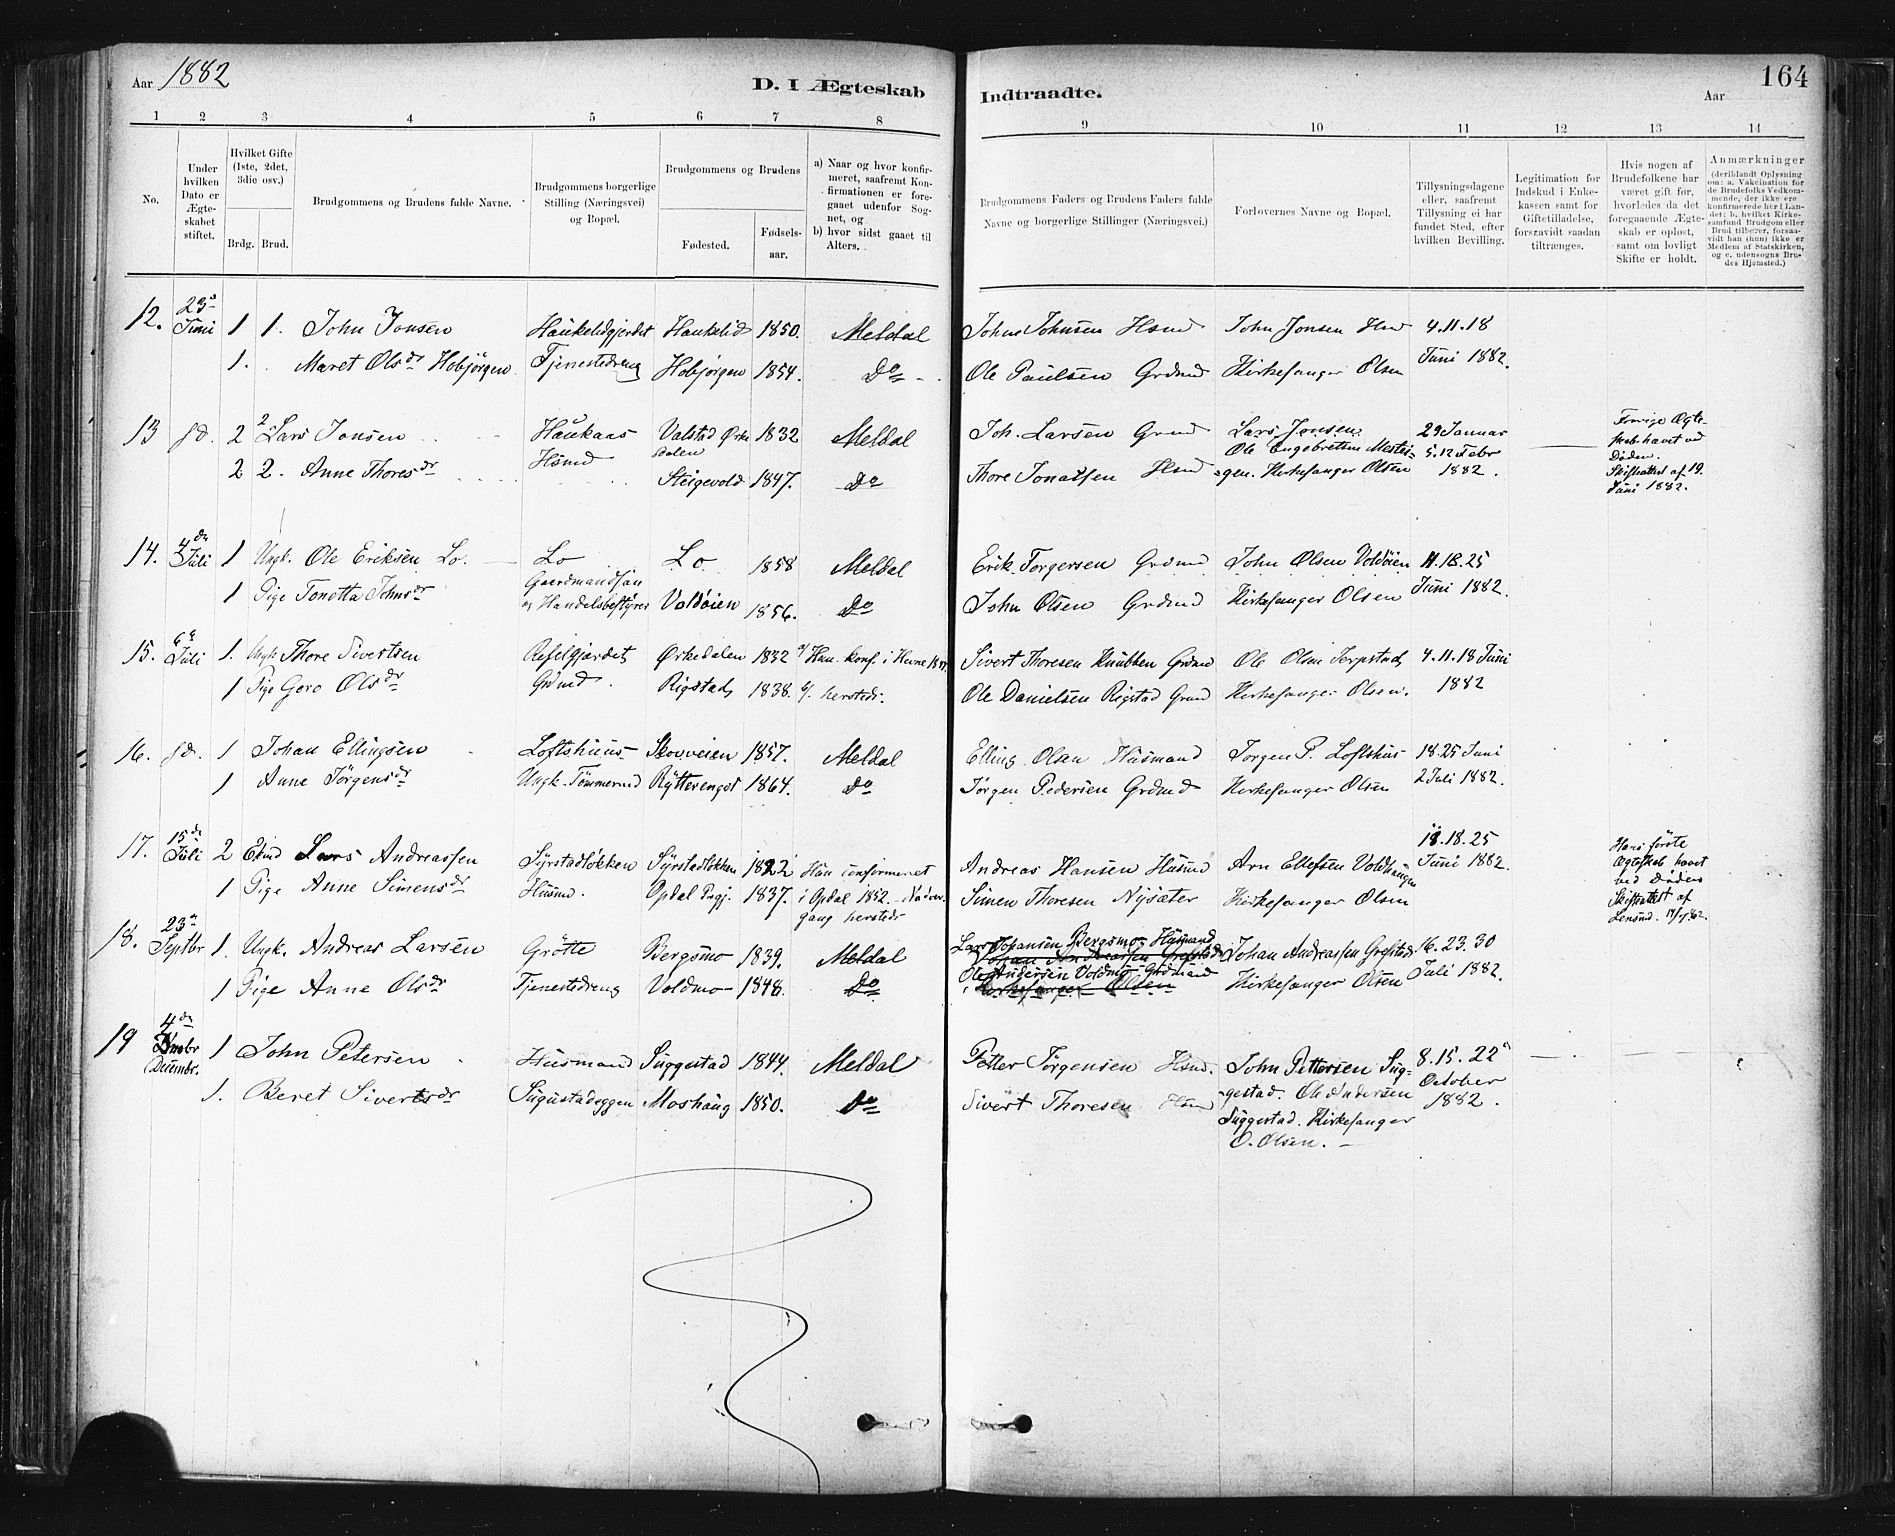 Aar 1882
D. I Ægteskab
Indtraadte.
Aar
164
1 2 3 4 5 6 7 8 9 10 11 12 13 14
No.
Under hvilken Dato er Ægteskabet stiftet.
Hvilket Gifte (1ste, 2det, 3die osv.)
Brdg. Brud.
Brudgommens og Brudens fulde Navne.
Brudgommens borgerlige Stilling (Næringsvei) og Bopæl.
Brudgommens og Brudens
Fødested.
Fødselsaar.
a) Naar og hvor konfirmeret, saafremt Konfirmationen er foregaaet udenfor Sognet, og
b) hvor sidst gaaet til Alters.
Brudgommens Faders og Brudens Faders fulde Navne og borgerlige Stillinger (Næringsvei.)
Forlovernes Navne og Bopæl.
Tillysningsdagene eller, saafremt Tillysning ei har fundet Sted, efter hvilken Bevilling.
Legitimation for Indskud i Enkekassen samt for Giftetilladelse, forsaavidt saadan tiltrænges.
Hvis nogen af Brudefolkene har været gift før, hvorledes da det foregaaende Ægteskab er opløst, samt om lovligt Skifte er holdt.
Anmærkninger (deriblandt Oplysning om: a. Vakcination for de Brudefolks Vedkommende, der ikke ere konfirmerede her i Landet; b. hvilket Kirkesamfund Brudgom eller Brud tilhører, forsaavidt han (hun) ikke er Medlem af Statskirken, og c. udensogns Brudes Hjemsted.)
12. 23de Juni 1 1. John Jonsen Haukelidgjerdet Haukelid 1850. Meldal John Johnsen Hsmd John Jonsen 4.11.18
1. Maret Olsdr Hobjørgen Tjenestedreng Hobjørgen 1854. Do Ole Paulsen Grdmd Kirkesanger Olsen Juni 1882.
13 sd. 2 2 Lars Jonsen Haukaas Valstad Ørkedalen 1832 Meldal Joh. Larsen Grmd Lars Jonsen 29 Januar
Ole Engebretsen 5. 12 Febr
2 2. Anne Thoresdr Hsmd Steigevold 1847. Do Thore Jonassen Hsmd Kirkesanger Olsen 1882.
Forrige Ægteskab havet ved Døden. Skifteattest af 19. Juni 1882.
14. 4de Juli 1 Ungk. Ole Eriksen Lo. Lo Lo 1858 Meldal Erik Torgersen Grdmd John Olsen Voldøien 11.18.25
1 Pige Tonetta Johnsdr Gaardmandssøn og Handelsbestyrer Voldøien 1856. Do John Olsen Grdmd Kirkesanger Olsen Juni 1882.
15. 6te Juli 1. Ungk. Thore Sivertsen Grdmd. Ørkedalen 1832 a/ Han konf. i Hevne Sivert Thoresen Knubben Grdmd Ole Olsen Jerpstad 4.11.18 Juni
1 Pige Goro Olsdr Rigstad 1838. b/ hersteds. Ole Danielsen Rigstad Grmd Kirkesanger Olsen. 1882
16. sd. 1 Johan Ellingsen Loftshuus Skovveien 1857. Meldal Elling Olsen Husmand Jørgen P. Loftshus 18.25 Juni
1 Anne Jørgensdr Ungk. Tømmermd Rytterenget 1864. Do Jørgen Pedersen Grdmd Kirkesanger Olsen 2 Juli 1882.
17. 15de Juli 2 Ekmd Lars Andreassen Syrstadløkken Syrstadløkken 1822 Han confirmeret Andreas Hansen Husmd Arn Ellefsen Voldhaugen 11.18.25 Juni 1882.
1 Pige Anne Simensdr Husmd. Opdal Prgj. 1837. i Opdal 1852. Nadvergang hersteds Simen Thoresen Nysæter Kirkesanger Olsen
Hans første Ægteskab havet ved Døden Skifteattest af Lensmd.
18. 23de Septbr 1. Ungk. Andreas Larsen Grøtte Bergsmo 1839. Meldal Lars Johansen Bergsmo Husmand Johan Andreassen Grefstad 16. 23. 30
Johan Andreassen Grefstad
1 Pige Anne Olsdr Tjenestedreng Voldmo 1848. Do Ole Andersen Voldmo Grdmand Kirkesanger Olsen Juli 1882.
Kirkesanger Olsen
19 4de Decembr. 1 John Petersen Husmand Suggestad 1844. Meldal Petter Jørgensen Hsmd. John Pettersen Suggestad. Ole Andersen Suggestad. Kirkesanger O. Olsen. 8. 15. 22 October 1882.
1. Beret Sivertsdr Moshaug 1850. Do Sivert Thoresen Hsmd